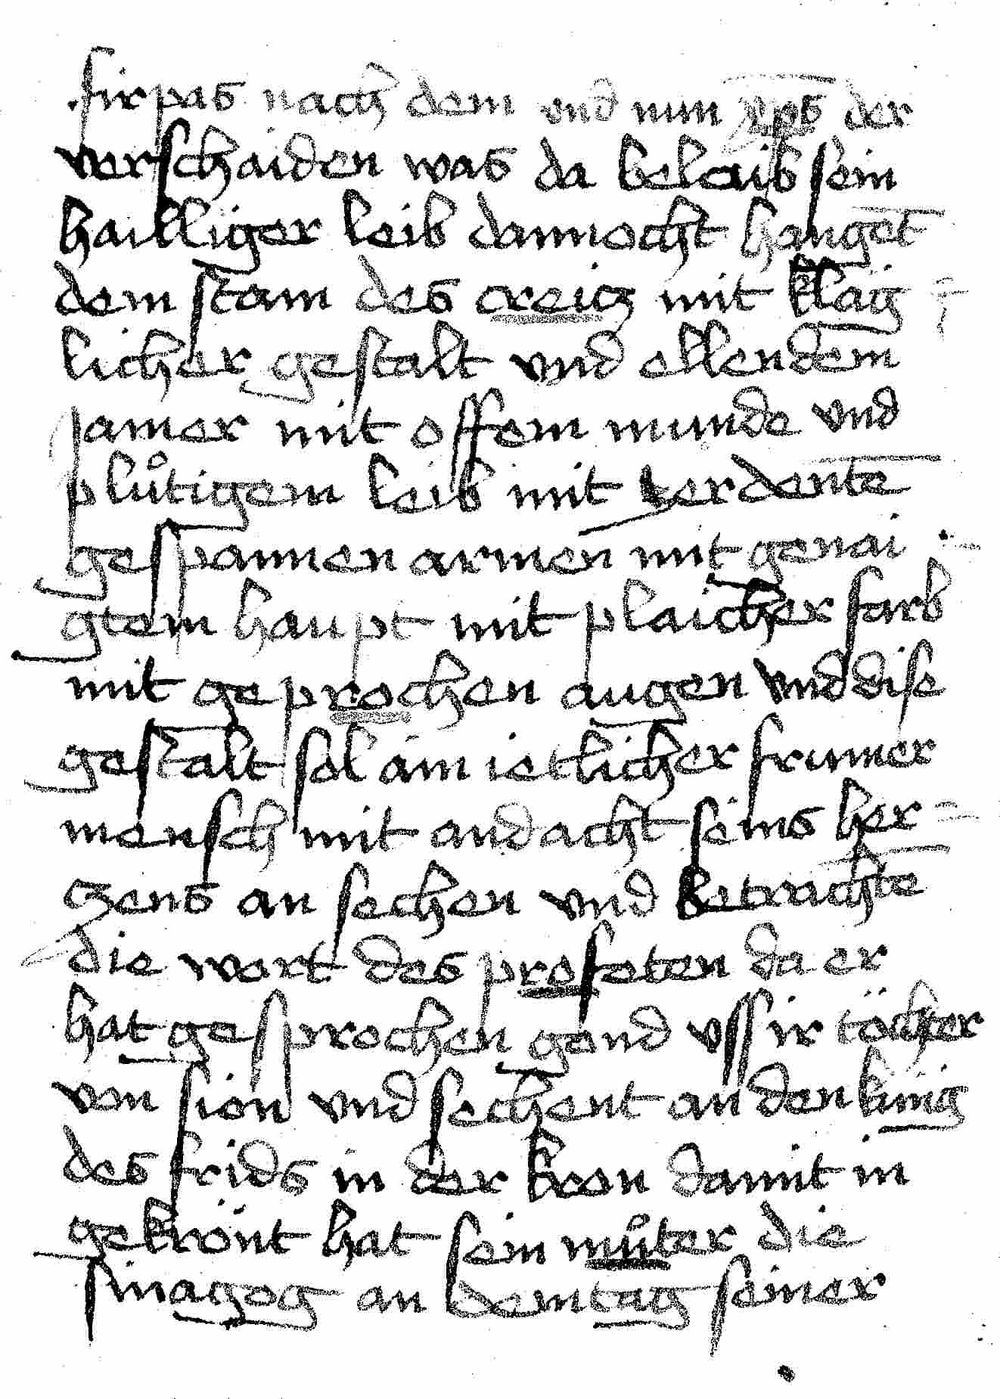 firpas nach dem vnd nun xps der
verschaiden was da belaib sein
hailliger leib dannocht hanget
dem stam des creicz mit kläg=
licher gestalt vnd ellendem
Jamer mit offem munde vnd
plůtigem leib mit verdente
gespannen armen mit genai
gtem haupt mit plaicher farb
mit geprochen augen vnd dise
gestalt sol ain ietlicher frumer
mensch mit andacht seins her=
zens an sechen vnd betrachte
die wort des profeten da er
hat gesprochen gond vss ir töchter
von sion vnd sechent an den künig
des frids in der kron damit in
gekrönt hat sein můter die
sinagog an dem tag seiner